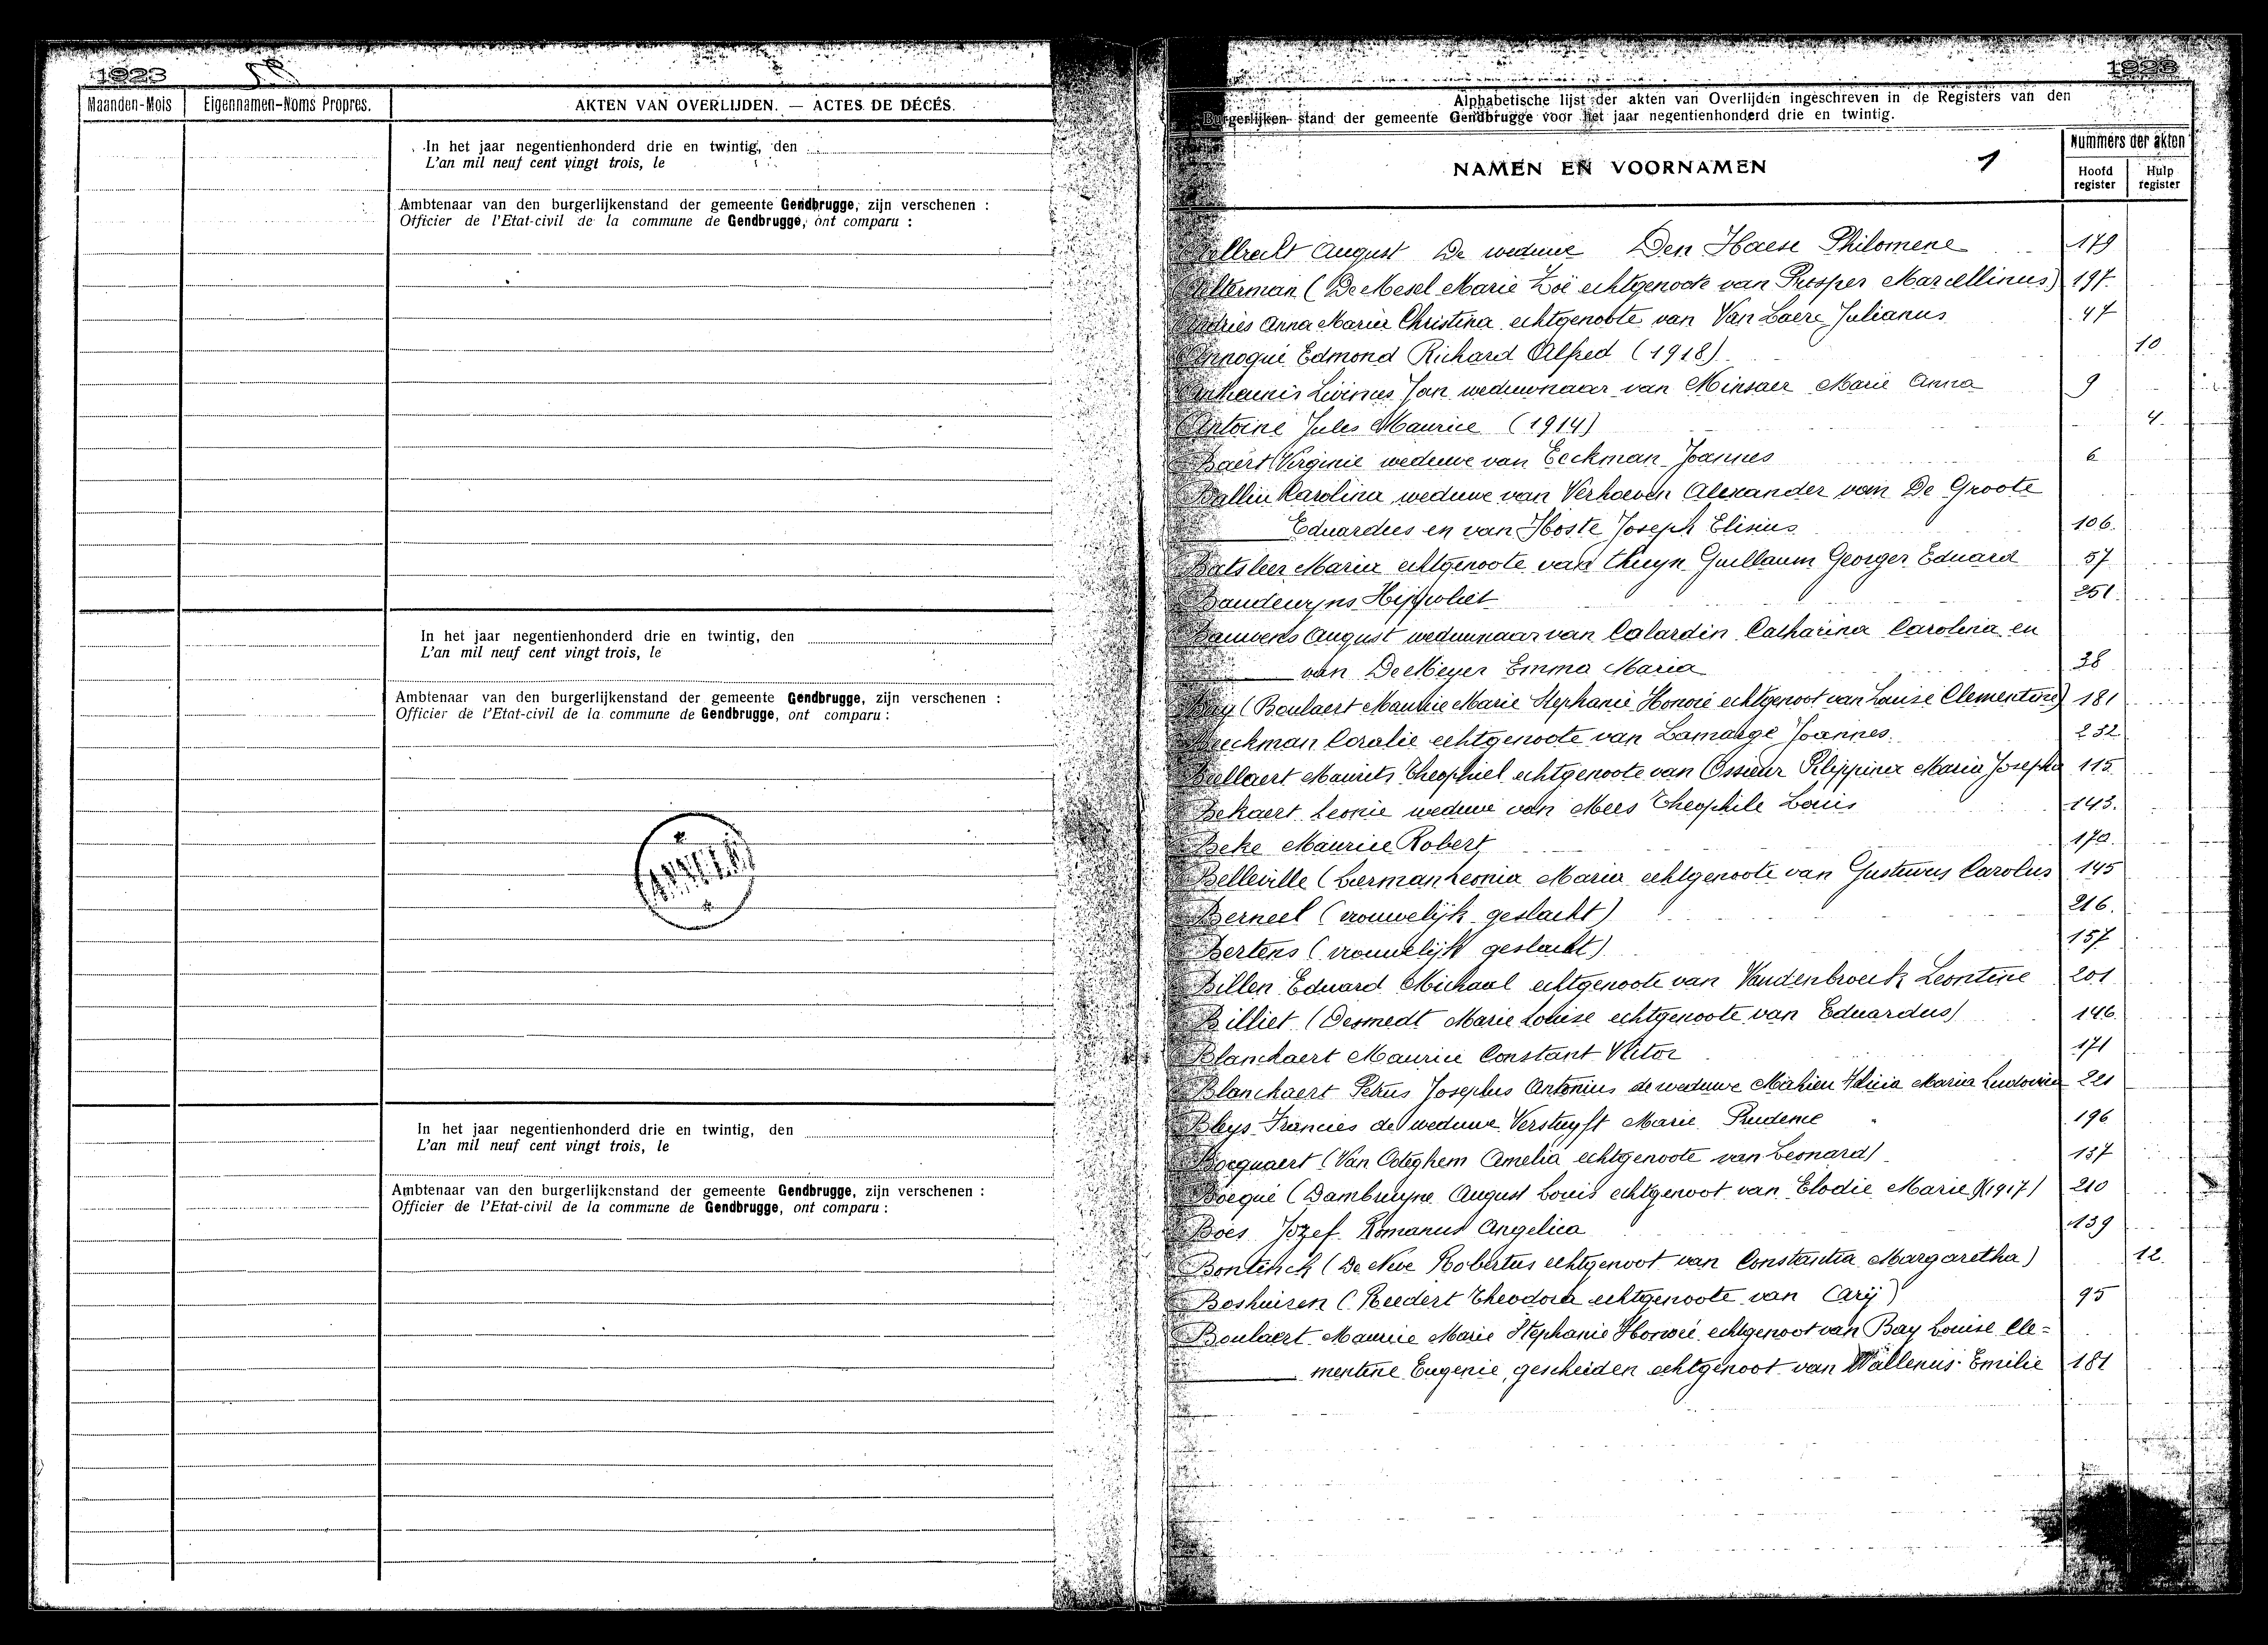 1923
Maanden-Mois Eigennamen-Noms Propres. AKTEN VAN OVERLIJDEN. — ACTES DE DÉCÉS.
In het jaar negentienhonderd drie en twintig, den
L'an mil neuf cent vingt trois, le
Ambtenaar van den burgerlijkenstand der gemeente Gendbrugge, zijn verschenen :
Officier de l'Etat-civil de la commune de Gendbrugge, ont comparu :
In het jaar negentienhonderd drie en twintig, den
L'an mil neuf cent vingt trois, le
Ambtenaar van den burgerlijkenstand der gemeente Gendbrugge, zijn verschenen :
Officier de l'Etat-civil de la commune de Gendbrugge, ont comparu :
In het jaar negentienhonderd drie en twintig, den
L'an mil neuf cent vingt trois, le
Ambtenaar van den burgerlijkenstand der gemeente Gendbrugge, zijn verschenen :
Officier de l'Etat-civil de la commune de Gendbrugge, ont comparu :
1923
Alphabetische lijst der akten van Overlijden ingeschreven in de Registers van den
Burgerlijken stand der gemeente Gendbrugge voor het jaar negentienhonderd drie en twintig.
NAMEN EN VOORNAMEN 1 Nummers der akten
Hoofd register Hulp register
August De weduwe Den Haese Philomene 179
(De Mesel Marie Zoë echtgenoote van Prosper Marcellinus) 197
Andries Anna Maria Christina echtgenoote van Van Laere Julianus 47
Edmond Richard Alfred (1918) 10
Livinus Jan weduwnaar van Minsaer Marie Anna 9
Antoine Jules Maurice (1914) 4
Baert Virginie weduwe van Eeckman Joannes 6
Ballin Karolina weduwe van Verhoeven Alexander van De Groote
Eduardus en van Hoste Joseph Elisius 106
Batsleer Maria echtgenoote van Guillaum Georges Eduard 57
Baudewyns Hippoliet 251
Bauwens August weduwnaar van Calardin Catharina Carolina en
van De Meyer Emma Maria 38
Bay (Boulaert Maurice Marie Stephanie Honoré echtgenoot van Louise Clementine) 181
Beeckman Coralie echtgenoote van Lamarge Joannes 232
Maurits Theophiel echtgenoote van Ossieur Philippina Maria Josepha 115
Bekaert Leonie weduwe van Mees Theophile Louis 143
Beke Maurice Robert 170
Belleville (Leonia Maria echtgenoote van Gustavus Carolus 145
Berneel (vrouwelijk geslacht) 216
Bertens (vrouwelijk geslacht) 157
Billen Eduard Michael echtgenoote van Vandenbroeck Leontine 201
Billiet (Desmedt Marie Louise echtgenoote van Eduardus) 146
Blanchaert Maurice Constant Victor 171
Blanchaert Petrus Josephus Antonius de weduwe Mahieu Maria Ludovica 221
Bleys Francies de weduwe Verstuyft Marie Prudence 196
Bocquaert (Van Ooteghem Amelia echtgenoote van Leonard) 137
Bocqué (Dambruyne August Louis echtgenoot van Elodie Marie (1917) 210
Boes Jozef Romanus Angelica 139
Bontinck (De Neve Robertus echtgenoot van Constantia Margaretha) 12
Boshuizen (Reedert Theodora echtgenoote van Carÿ) 95
Boulaert Maurice Marie Stephanie Honoré echtgenoot van Bay Louise Cle-
mentine Eugenie, gescheiden echtgenoot van Wallenus Emilie 181